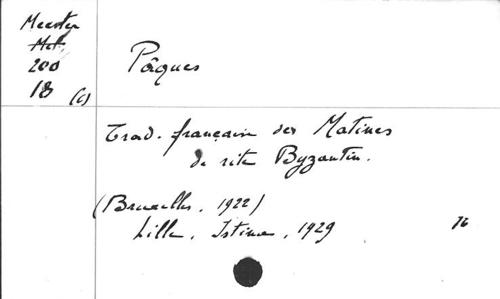 Meester
Met.
200
18 (c)
Pâques
Trad. française des Matines
de rite Byzantin.
(Bruxelles, 1922)
Lille, Istina, 1929